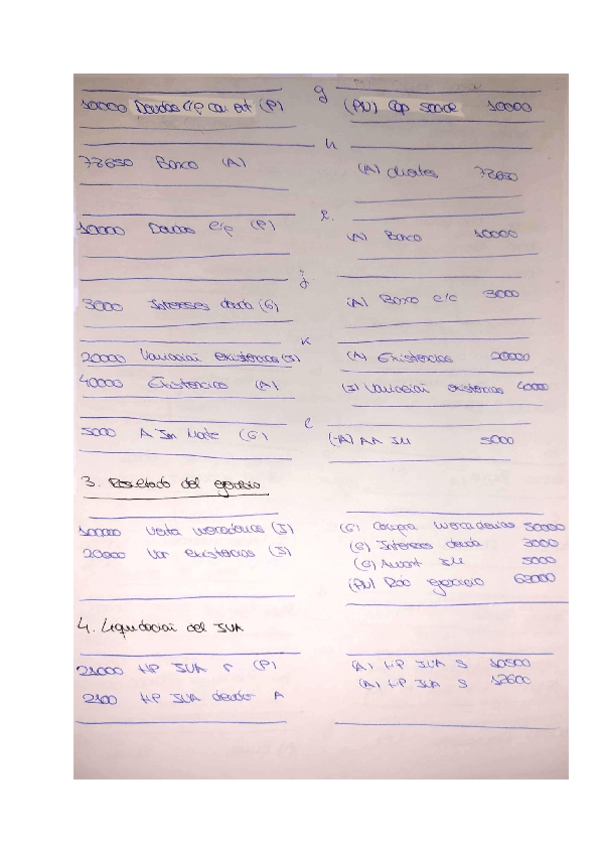 g
10000 Deudas c/p con ext (P) (PN) Cap social 10000
h
78650 Banco (A) (A) clientes 78650
i.
10000 Deudas c/p (P) (A) Banco 10000
j
3000 Intereses deuda (G) (A) Banco c/c 3000
K
20000 Variación existencias (I) (A) Existencias 20000
40000 Existencias (A) (I) Variación existencias 40000
l
5000 A Im Mate (G) (-A) AA IM 5000
3. Resultado del ejercicio
100000 Venta mercaderías (I) (G) Compra mercaderías 50000
20000 Var existencias (I) (G) Intereses deuda 3000
(G) Amort IM 5000
(PN) Rdo ejercicio 62000
4. Liquidación del IVA
21000 HP IVA r (P) (A) HP IVA S 10500
2100 HP IVA deudor A (A) HP IVA S 12600